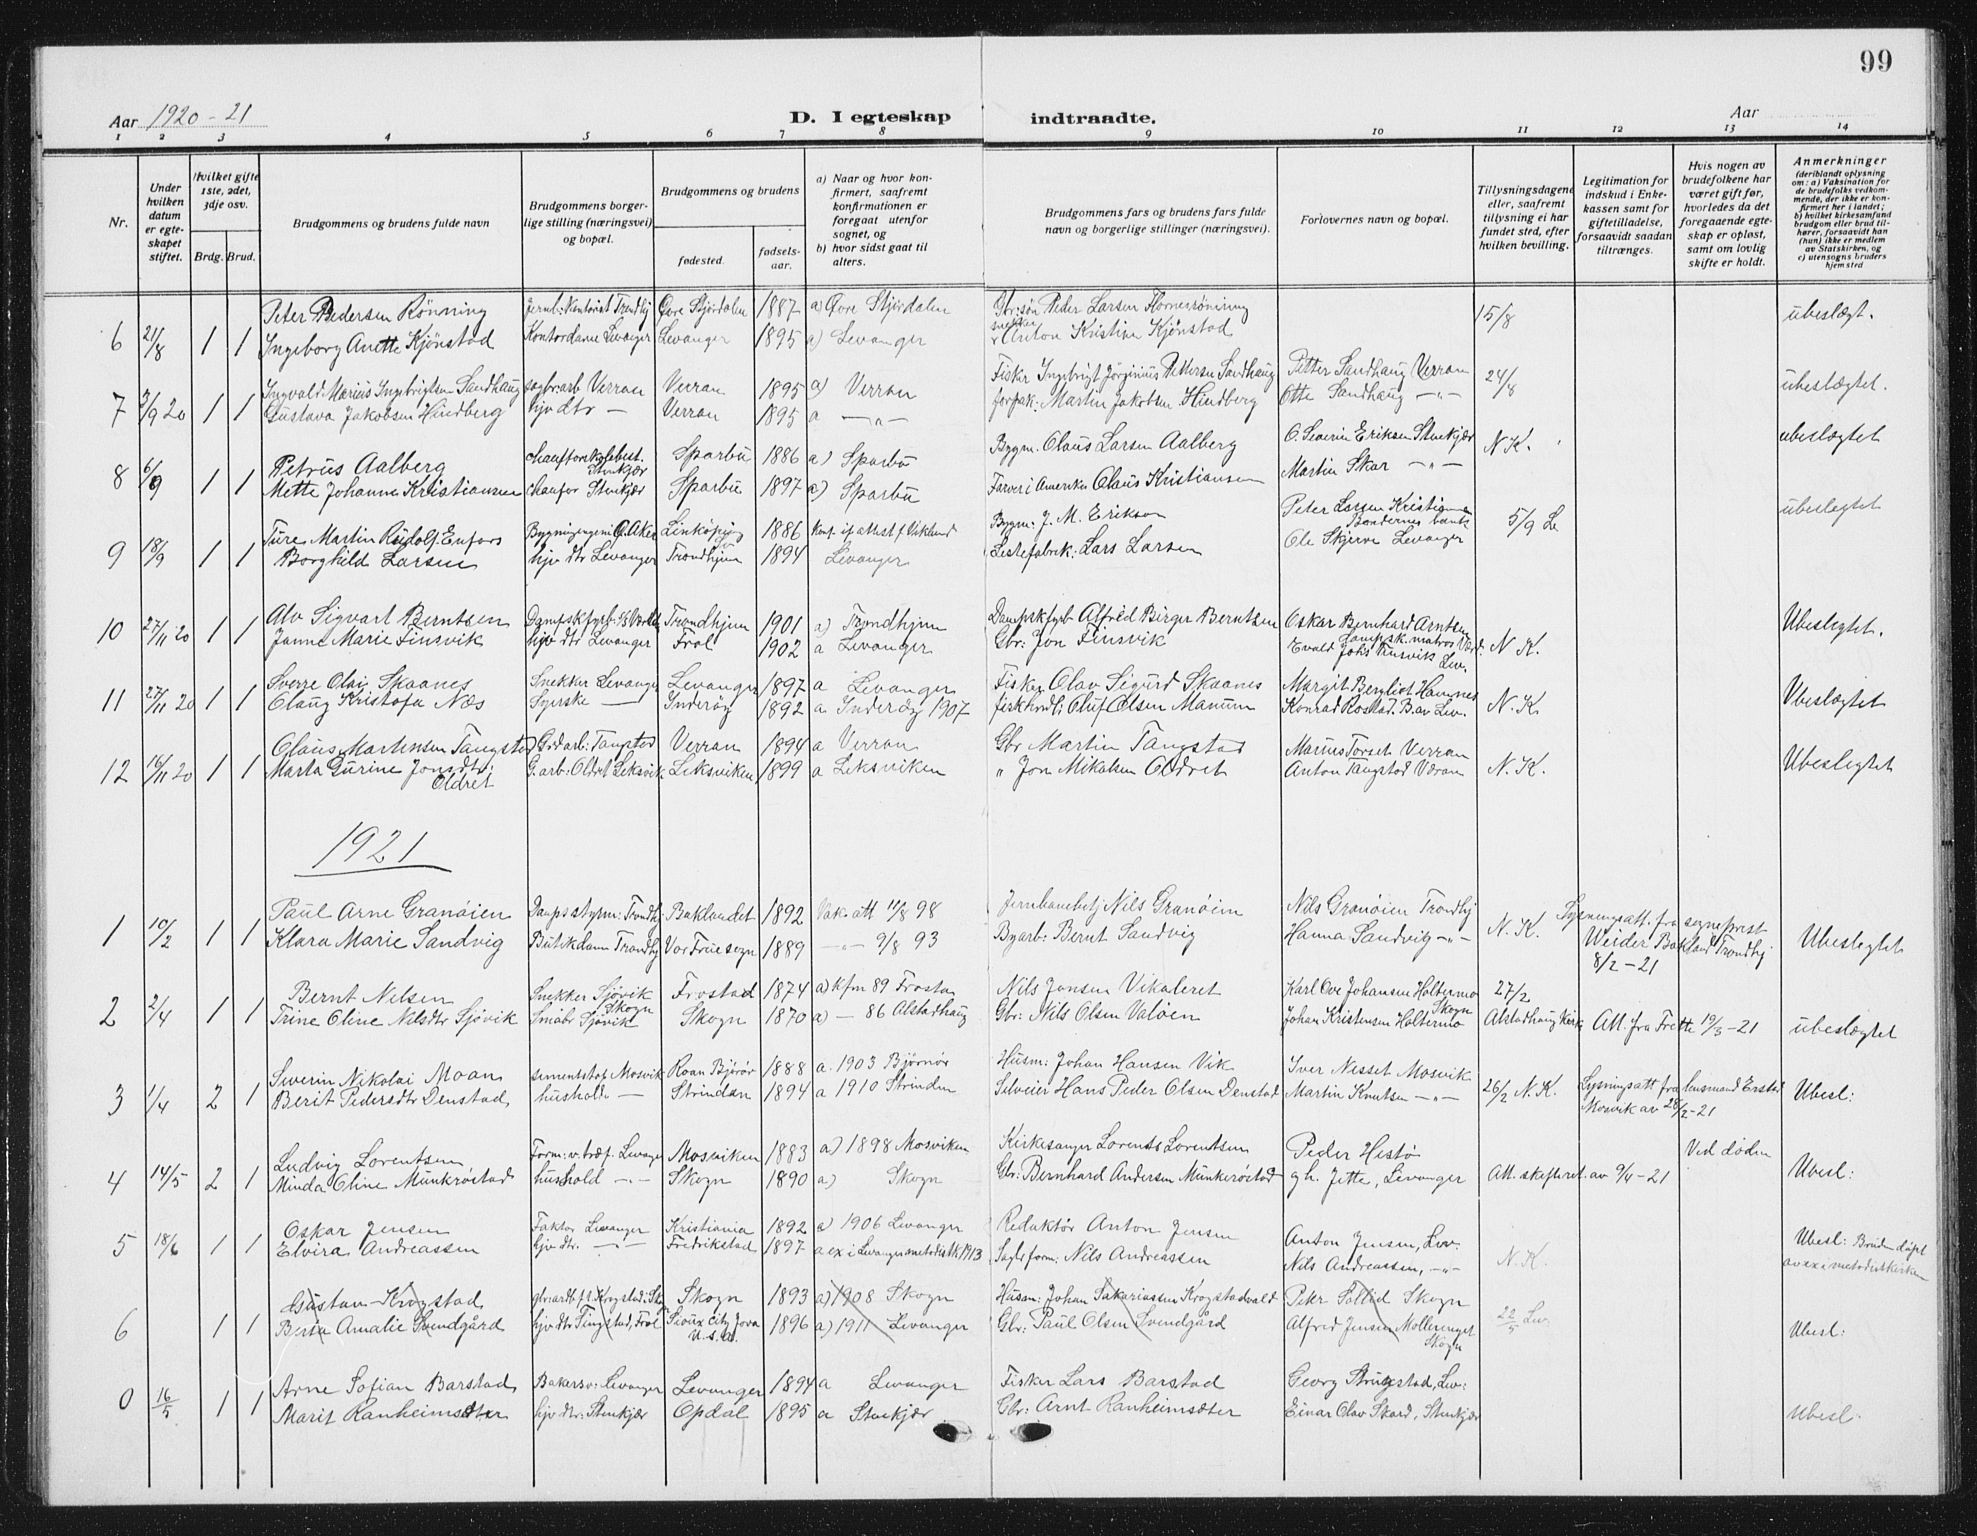 99
Aar 1920-21
D. I egteskap indtraadte.
Aar
1 2 3 4 5 6 7 8 9 10 11 12 13 14
Nr.
Under hvilken datum er egteskapet stiftet.
Hvilket gifte 1ste, 2det, 3dje osv.
Brdg. Brud.
Brudgommens og brudens fulde navn
Brudgommens borgerlige stilling (næringsvei) og bopæl.
Brudgommens og brudens
fødested.
fødselsaar.
a) Naar og hvor konfirmert, saafremt konfirmationen er foregaat utenfor sognet, og
b) hvor sidst gaat til alters.
Brudgommens fars og brudens fars fulde navn og borgerlige stillinger (næringsvei).
Forlovernes navn og bopæl.
Tillysningsdagene eller, saafremt tillysning ei har fundet sted, efter hvilken bevilling.
Legitimation for indskud i Enkekassen samt for giftetilladelse, forsaavidt saadan tiltrænges.
Hvis nogen av brudefolkene har været gift før, hvorledes da det foregaaende egteskap er opløst, samt om lovlig skifte er holdt.
Anmerkninger (deriblandt oplysning om: a) Vaksination for de brudefolks vedkommende, der ikke er konfirmert her i landet; b) hvilket kirkesamfund brudgom eller brud tilhører, forsaavidt han (hun) ikke er medlem av Statskirken, og c) utensogns bruders hjemsted
Peter Pedersen Rönning Jernb: Kontorist Trondhj Övre Stjördalen 1887 a) Övre Stjördalen Gbr: søn Peder Larsen Flornesrönning 15/8 ubeslægt.
6 21/8 1 1 Ingeborg Anette Kjönstad Kontordame Levanger Levanger 1895 a) Levanger snekker Anton Kristian Kjönstad
Ingvald Marius Ingebrigtsen Sandhaug sagbr:arb Verran Verran 1895 a) Verran Fisker Ingebrigt Jörginius Pettersen Sandhaug Petter Sandhaug Verran 24/8 ubeslægtet.
7 2/9 20 1 1 Gustava Jakobsen Hindberg hjv dtr — Verran 1895 a — " — forpak: Martin Jakobsen Hindberg Otte Sandhaug — " —
Petrus Aalberg Stenkjær Sparbu 1886 a) Sparbu Bygm. Claus Larsen Aalberg O. Severin Eriksen Stenkjær N. K. ubeslægtet
8 6/9 1 1 Mette Johanne Kristiansen Stenkjær Sparbu 1897 a) Sparbu Farver i Amerika Claus Kristiansen Martin Skar — " —
Ture Martin Rudolf Enfors Linköping 1886 Bygm: J. M. Erikson Peter Larsen Kristiania Bondernes bank 5/9 Le ubeslægtet
9 18/9 1 1 Borghild Larsen hjv dtr Levanger Trondhjem 1894 Levanger Listefabrik: Lars Larsen Ole Skjerve Levanger
Alv Sigvart Berntsen Trondhjem 1901 a) Trondhjem Dampskfyrb Alfred Birger Berntsen Oskar Bernhard Arntsen Ubeslegtet.
10 27/11 20 1 1 Janna Marie Finsvik hjv dtr Levanger Frol 1902 a Levanger Gbr: Jon Finsvik Evald Johs Finsvik Lev. N. K.
Sverre Olai Skaanes Snekker Levanger Levanger 1897 a Levanger Fisker Olav Sigurd Skaanes Margit Bergliot Hamnes Ubeslægtet
11 27/11 20 1 1 Olaug Kristofa Næs Syerske — Inderöy 1892 a Inderøy 1907 fiskhndl: Oluf Olsen Manum Konrad Rostad. B. av Lev. N. K.
Claus Martinsen Tangstad Grdarb: Tangstad Verran 1894 a Verran Gbr Martin Tangstad Marius Torset Verran Ubeslegtet
12 16/11 20 1 1 Marta Gurine Jonsdtr. Oldret G. arb: Oldret Leksvik Leksviken 1899 a Leksviken " Jon Mikalsen Oldret Anton Tangstad Veran N. K.
1921
Paul Arne Granöien Dampsstyrm: Trondhj Baklandet 1892 Vak. att 11/8 98 Jernbanebetj Nils Granöien Nils Granöien Trondhj Lysningsatt. fra sogneprest
1 10/2 1 1 Klara Marie Sandvig Butikdame Trondhj Vor Frue sogn 1889 — " — 9/8 93 Byarb: Bernt Sandvig Hanna Sandvig — " — N. K. Weider Bakland Trondhj 8/2-21 Ubeslegtet
Bernt Nilsen Snekker Sjövik Skogn Frostad 1874 a) kfm 89 Frosta Nils Jonsen Vikaleret Karl Ove Johansen Holtermo Skogn 27/2
2 2/4 1 1 Trine Oline Nilsdtr Sjövik Småbr Sjövik Skogn 1870 a) — 86 Alstadhaug Gbr: Nils Olsen Valöen Johan Kristensen Holtermo Alstadhaug kirk Att. fra Frette 19/3-21 ubeslægtet
Severin Nikolai Moan sementstøp Mosvik Roan Björör 1888 a. 1903 Bjørnør Husm: Johan Hansen Vik Iver Nesset Mosvik
3 1/4 2 1 Berit Pedersdtr Denstad hushold — Strindan 1894 a 1910 Strinden Selveier Hans Peder Olsen Denstad Martin Knutsen — " — 26/2 N. K. Lysningsatt fra Mosvik av 28/2-21 Ubesl:
Ludvig Lorentsen Form: v. bræf. Levanger Mosviken 1883 a) 1898 Mosviken Kirkesanger Lorents Lorentsen Peder Hestö Ved døden
4 14/5 2 1 Minda Oline Munkröstad hushold — " — Skogn 1890 a) Skogn Gbr: Bernhard Andersen Munkeröstad gh. Jette, Levanger Att. skifteret. av 9/4-21 Ubesl:
Oskar Jensen Faktor Levanger Kristiania 1892 a) 1906 Levanger Redaktör Anton Jensen Anton Jensen, Lev. Ubesl: Bruden döpt
5 18/6 1 1 Elvira Andreassen hjv dtr. — " — Fredrikstad 1897 a ex i Levanger metodistk 1913 Sagleform: Nils Andreassen Nils Andreassen, — " — N. K. av ex i metodistkirken
Gustav Krogstad Skogn 1893 a) 1908 Skogn Husm: Johan Sakariassen Krogstadvald Petter Solliid Skogn
6 1 1 Berta Amalie Svendgård hjv dtr Tingstad, Frol Sioux City Jova U.S.A. 1896 a) 1911 Levanger Gbr: Paul Olsen Svendgård Alfred Jensen Mollerenget Skogn 22/5 Lev. Ubesl:
Arne Sofian Barstad Bakersv: Levanger Levanger 1894 a Levanger Fisker Lars Barstad Georg Strugstad, Lev:
0 16/5 1 1 Marit Ranheimsæter hjv dtr: Stenkjær Opdal 1895 a Stenkjær Gbr: Arnt Ranheimsæter Einar Olav Skard, Stenkjær Ubesl.